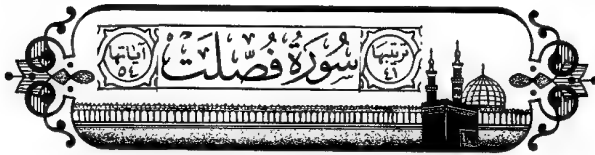 ترتيبها
٤١
سُورَةُ فُصِّلَتْ
آياتها
٥٤